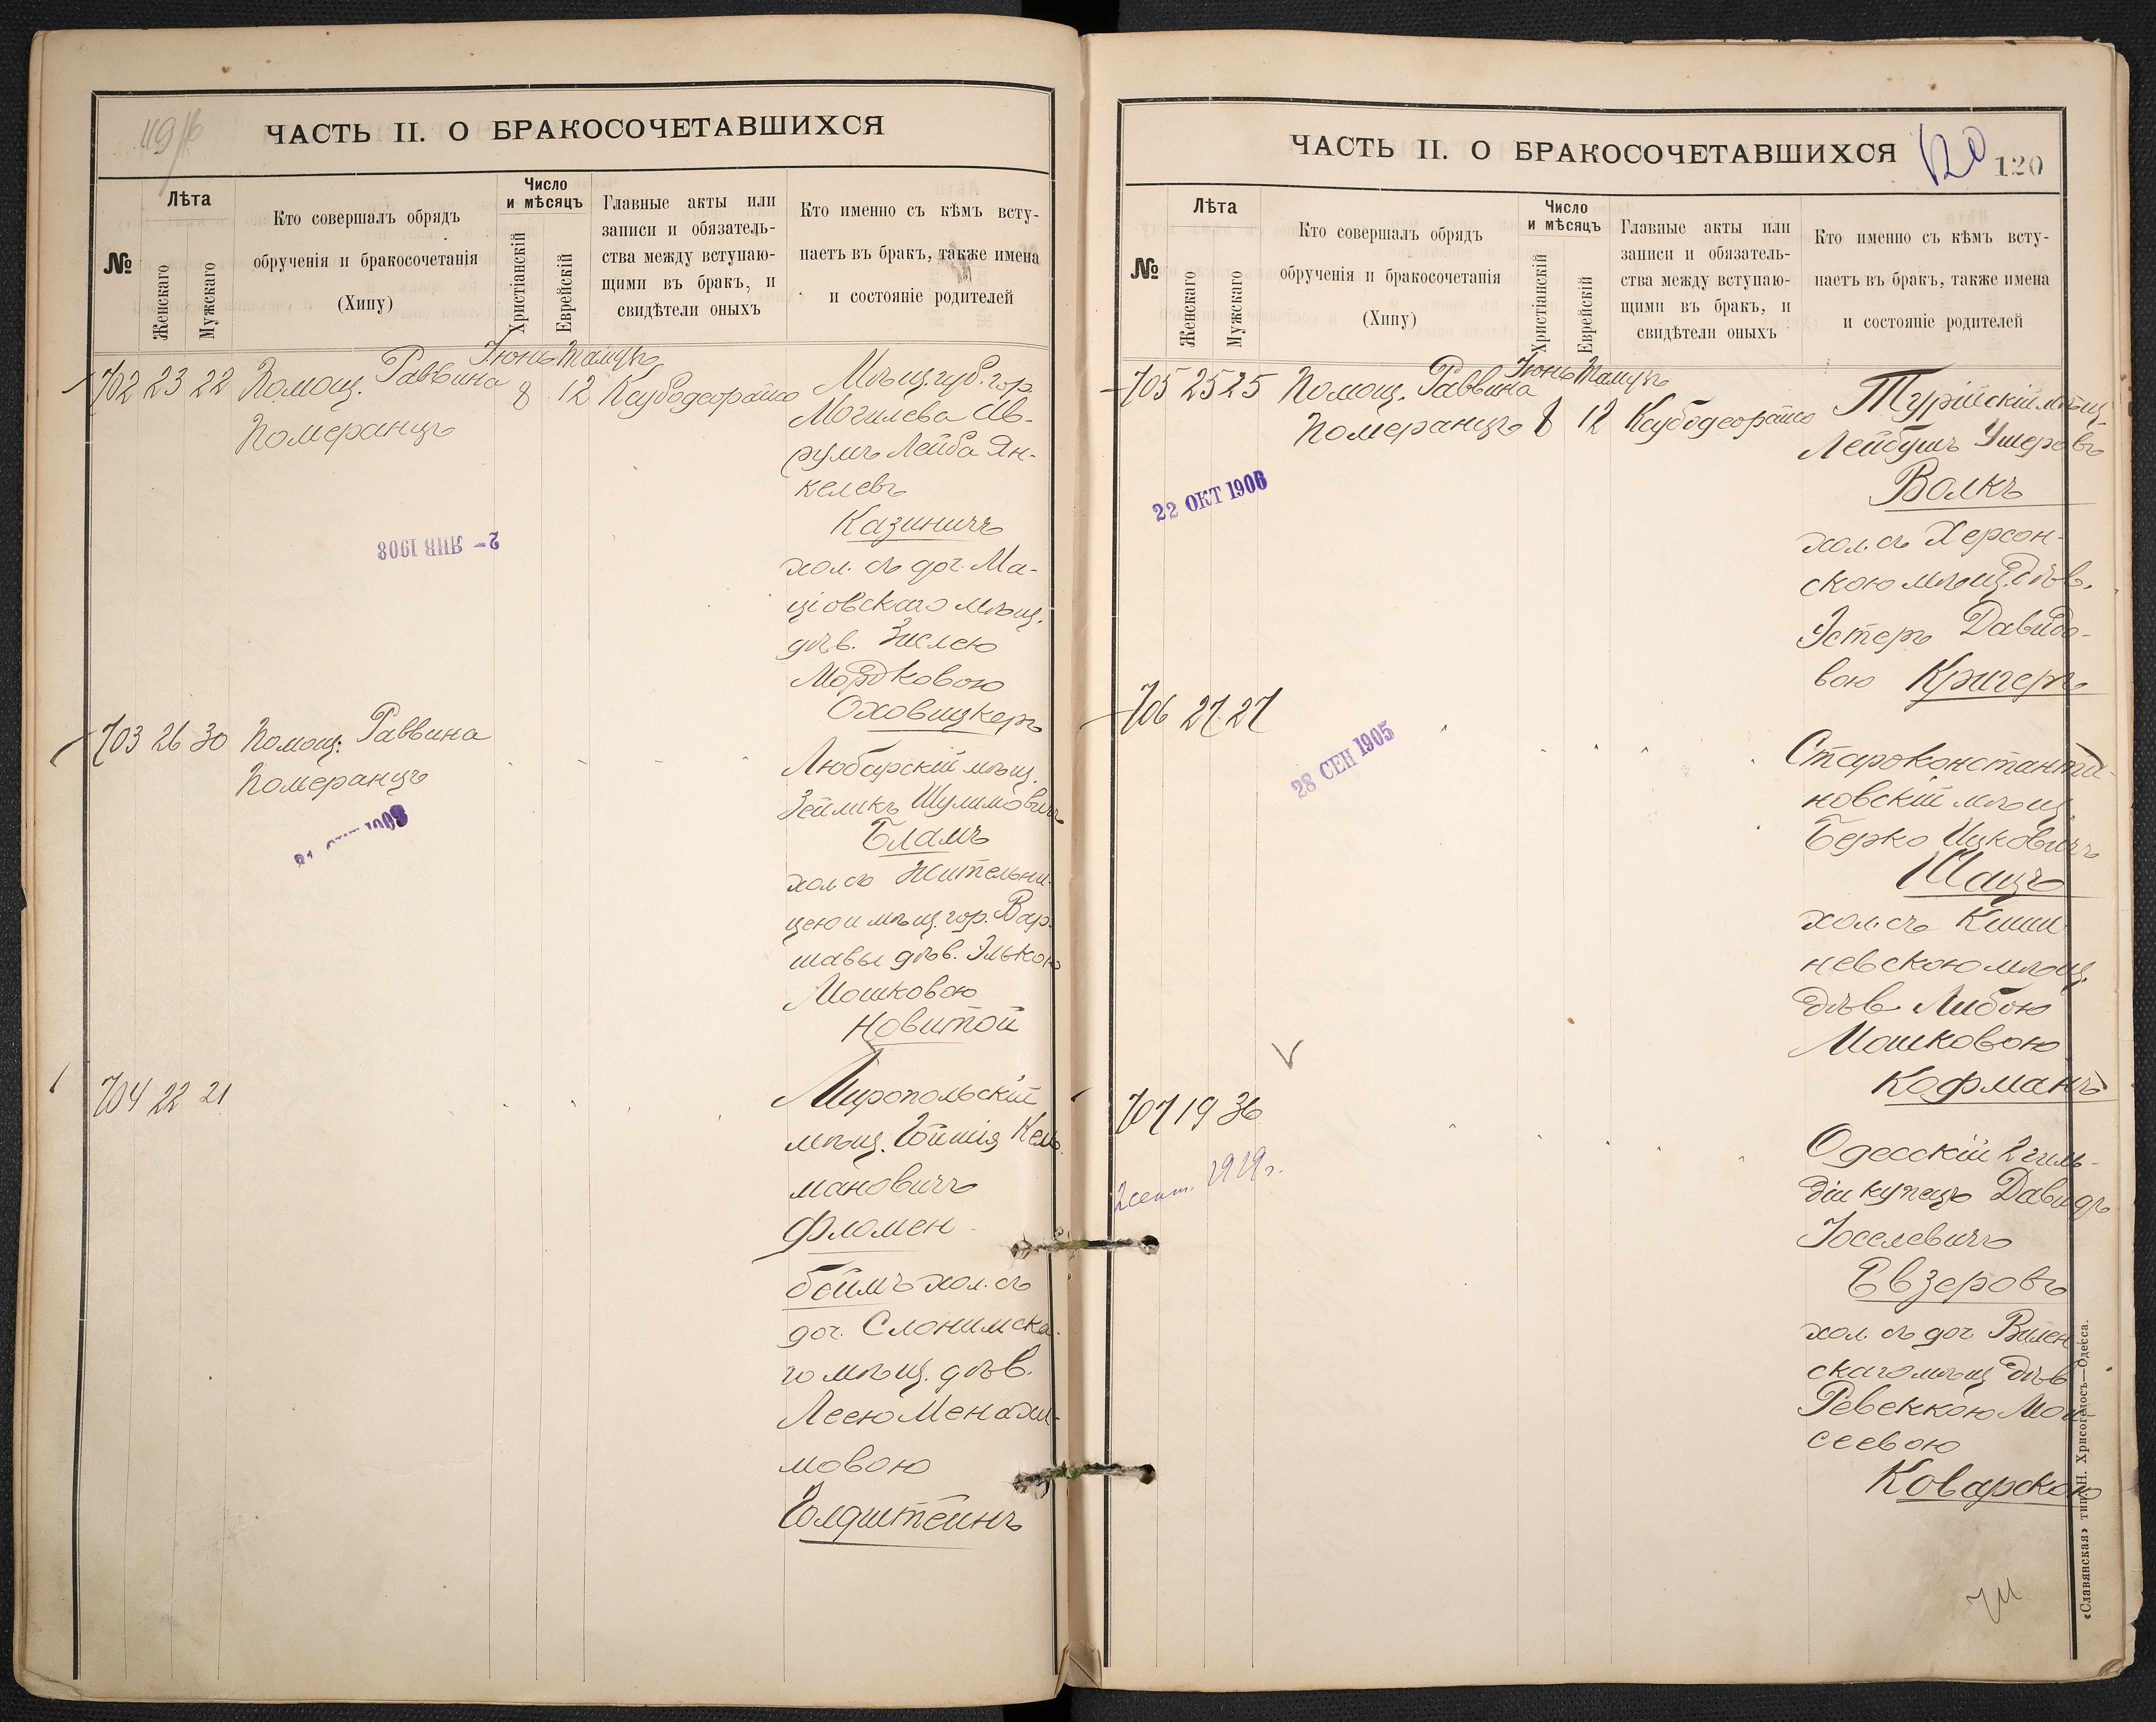 119/б
ЧАСТЬ II. О БРАКОСОЧЕТАВШИХСЯ
№
Лѣта
Женскаго
Мужскаго
Кто совершалъ обрядъ
обрученія и бракосочетанія
(Хипу)
Число
и мѣсяцъ
Христіанскій
Еврейскій
Главные акты или
записи и обязатель-
ства между вступаю-
щими въ бракъ, и
свидѣтели оныхъ
Кто именно съ кѣмъ всту-
паетъ въ бракъ, также имена
и состояніе родителей
702 23 22 Помощ. Раввина
Померанцъ
Іюнь Тамузъ
8 12
Мѣщ. губ. гор.
Могилева Ав-
румъ Лейба Ян-
келевъ
Казиничъ
хол. съ доч. Ма-
ціовскаго мѣщ.
дѣв. Зислею
Мордковою
Оховицкеръ
2- ЯНВ 1908
703 26 30 Помощ. Раввина
Померанцъ
Любарскій мѣщ.
Зейликъ Шулимовичъ
Бламъ
хол. съ жительни-
цею и мѣщ. гор. Вар-
шавы дѣв. Элькою
Мошковою
Новитой
704 22 21
Миропольскій
мѣщ. Гойшія Кель-
мановичъ
Фломен-
боймъ хол. съ
доч. Слонимска-
го мѣщ. дѣв.
Леею Менахи-
мовою
Голдштейнъ
ЧАСТЬ II. О БРАКОСОЧЕТАВШИХСЯ
120
120
№
Лѣта
Женскаго
Мужскаго
Кто совершалъ обрядъ
обрученія и бракосочетанія
(Хипу)
Число
и мѣсяцъ
Христіанскій
Еврейскій
Главные акты или
записи и обязатель-
ства между вступаю-
щими въ бракъ, и
свидѣтели оныхъ
Кто именно съ кѣмъ всту-
паетъ въ бракъ, также имена
и состояніе родителей
705 25 25 Помощ. Раввина
Померанцъ
Іюнь Тамузъ
8 12
Турійскій мѣщ.
Лейбушъ Ушеровъ
Волкъ
хол. съ Херсон-
скою мѣщ. дѣв.
Эстеръ Давидо-
вою Кригеръ
22 ОКТ 1906
706 27 27
28 СЕН 1905
Староконстанти-
новскій мѣщ.
Берко Ицковичъ
Шацъ
хол. съ Киши-
невскою мѣщ.
дѣв. Либою
Мошковою
Кофманъ
707 19 36
2 сент. 1919 г.
Одесскій 2 гиль-
діи купецъ Давидъ
Іоселевичъ
Евзеровъ
хол. съ доч. Вилен-
скаго мѣщ. дѣв.
Ревеккою Мои-
сеевою
Коварскою
«Славянская» тип. Н. Хрисогелосъ—Одесса.